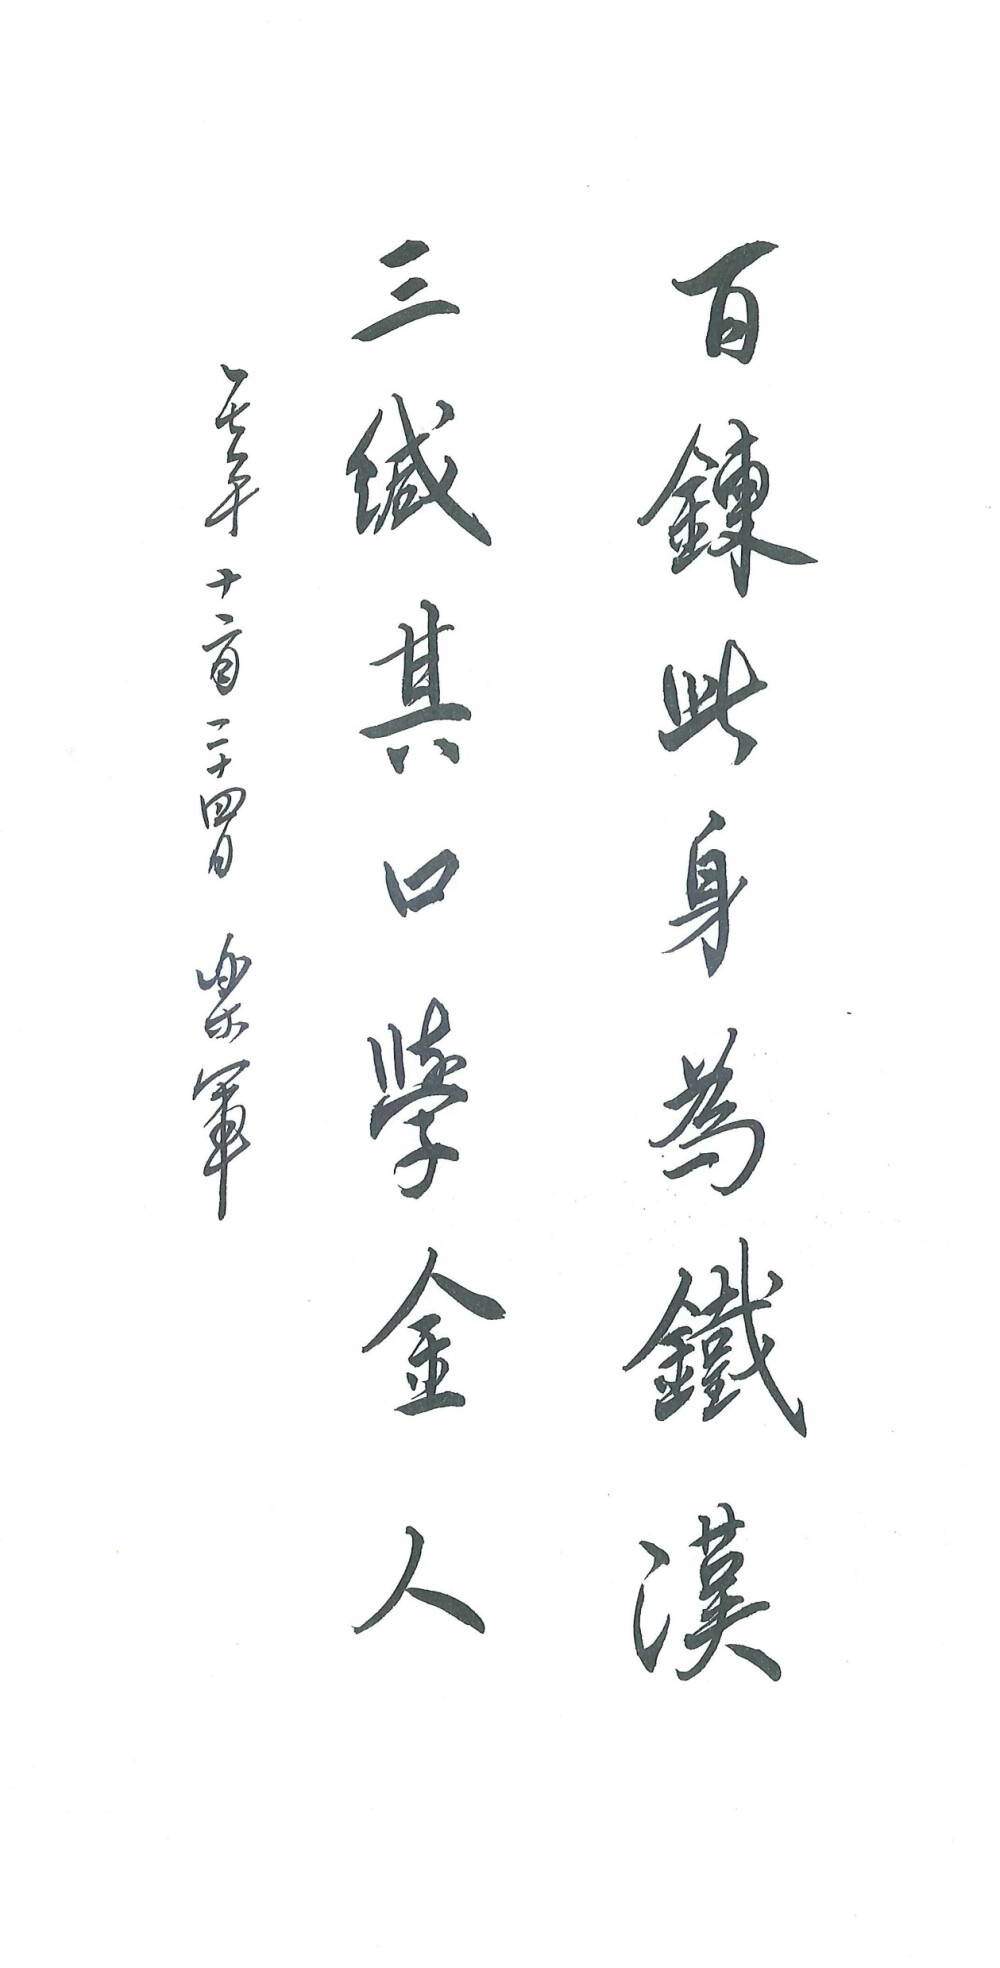 百鍊此身為鐵漢
三緘其口學金人
一七年十二月二十四日 樂軍